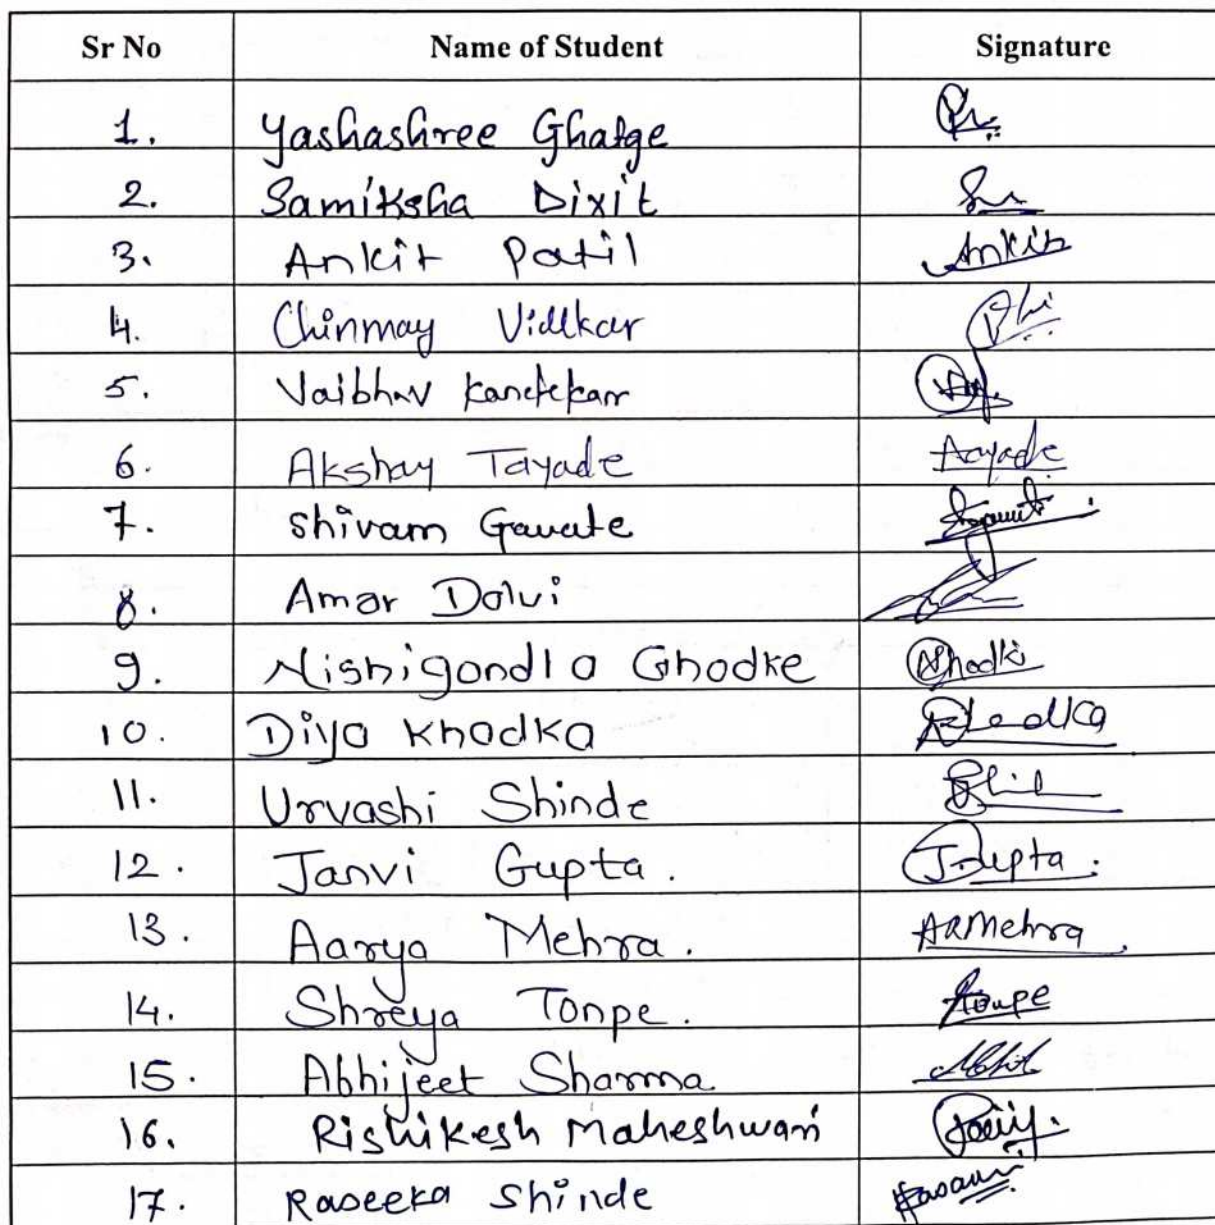 Sr No Name of Student Signature
1. Yashashree Ghatge
2. Samiksha Dixit
3. Ankit Patil Ankit
4. Chinmay
5. Vaibhav
6. Akshay Tayade Aayade
7. Shivam Gavate
8. Amar Dalvi
9. Nishigandha Ghodke
10. Diya Khadka
11. Urvashi Shinde
12. Janvi Gupta. JGupta.
13. Aarya Mehra. ARMehra.
14. Shreya Tonpe.
15. Abhijeet Sharma
16. Rishikesh Maheshwari
17. Raseeka Shinde